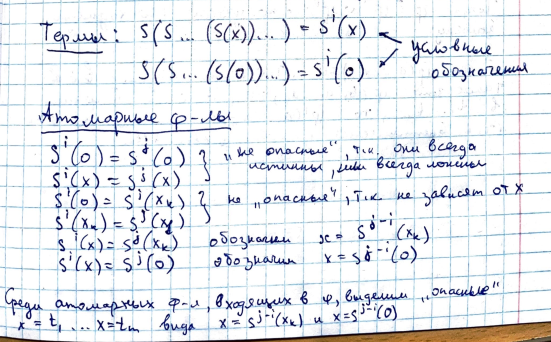 Термы: S(S...(S(x))...) = Sⁱ(x)
S(S...(S(0))...) = Sⁱ(0)
условные
обозначения
Атомарные ф-лы
Sⁱ(0) = Sʲ(0) } "не опасные", т.к. они всегда
Sⁱ(x) = Sʲ(x) истинны, или всегда ложны
Sⁱ(0) = Sʲ(xₖ) } не "опасные", т.к. не зависят от x
Sⁱ(xₖ) = Sʲ(xₗ)
Sⁱ(x) = Sʲ(xₖ) обозначим x = Sʲ⁻ⁱ(xₖ)
Sⁱ(x) = Sʲ(0) обозначим x = Sʲ⁻ⁱ(0)
Среди атомарных ф-л, входящих в φ, выделим "опасные"
x = t₁ ... x = tₘ вида x = Sʲ⁻ⁱ(xₖ) и x = Sʲ⁻ⁱ(0)